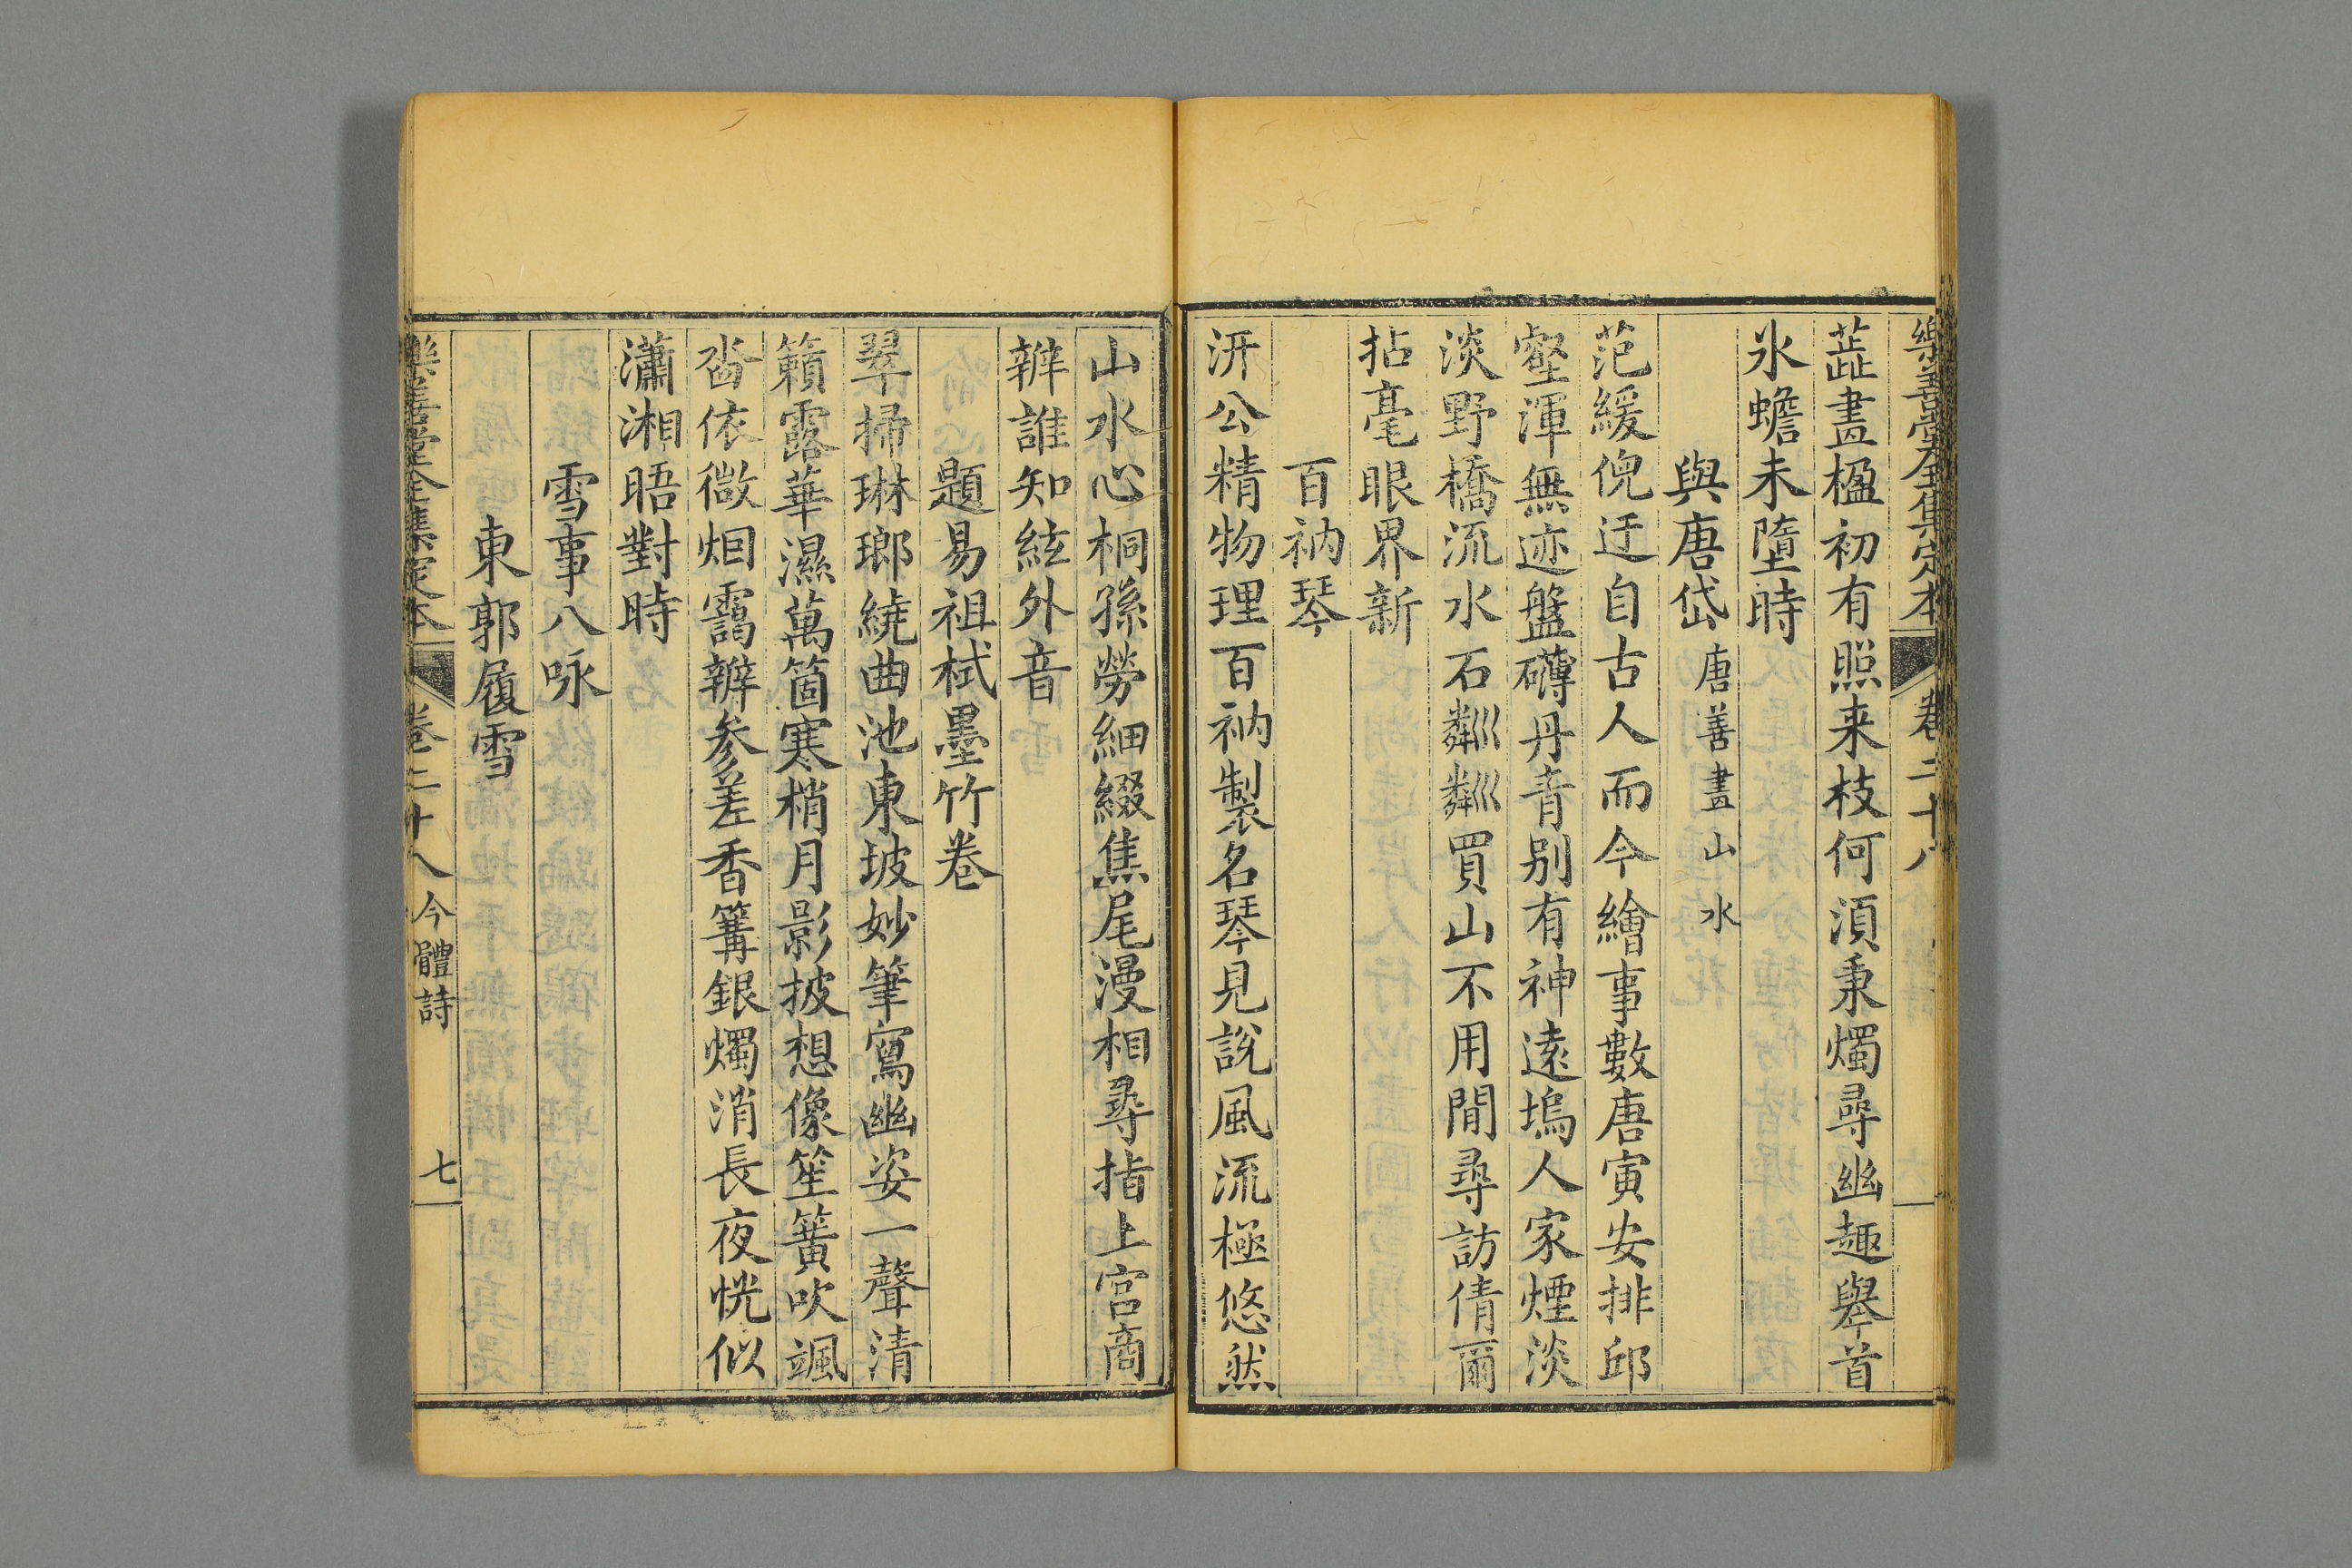 樂善堂全集定本 卷二十八
蕋畫楹初有照来枝何須秉燭尋幽趣舉首
氷蟾未墮時
與唐岱唐善畫山水
范緩倪迂自古人而今繪事數唐寅安排邱
壑渾無迹盤礴丹青别有神遠塢人家煙淡
淡野橋流水石粼粼買山不用閒尋訪倩爾
拈毫眼界新
百衲琴
汧公精物理百衲製名琴見說風流極悠然
山水心桐孫勞細綴焦尾漫相尋指上宮商
辨誰知絃外音
題易祖栻墨竹卷
翠掃琳瑯繞曲池東坡妙筆寫幽姿一聲清
籟露華濕萬箇寒梢月影披想像笙簧吹颯
沓依微烟靄辨参差香篝銀燭消長夜恍似
瀟湘晤對時
雪事八咏
東郭履雪
樂善堂全集定本 卷二十八 今體詩 七